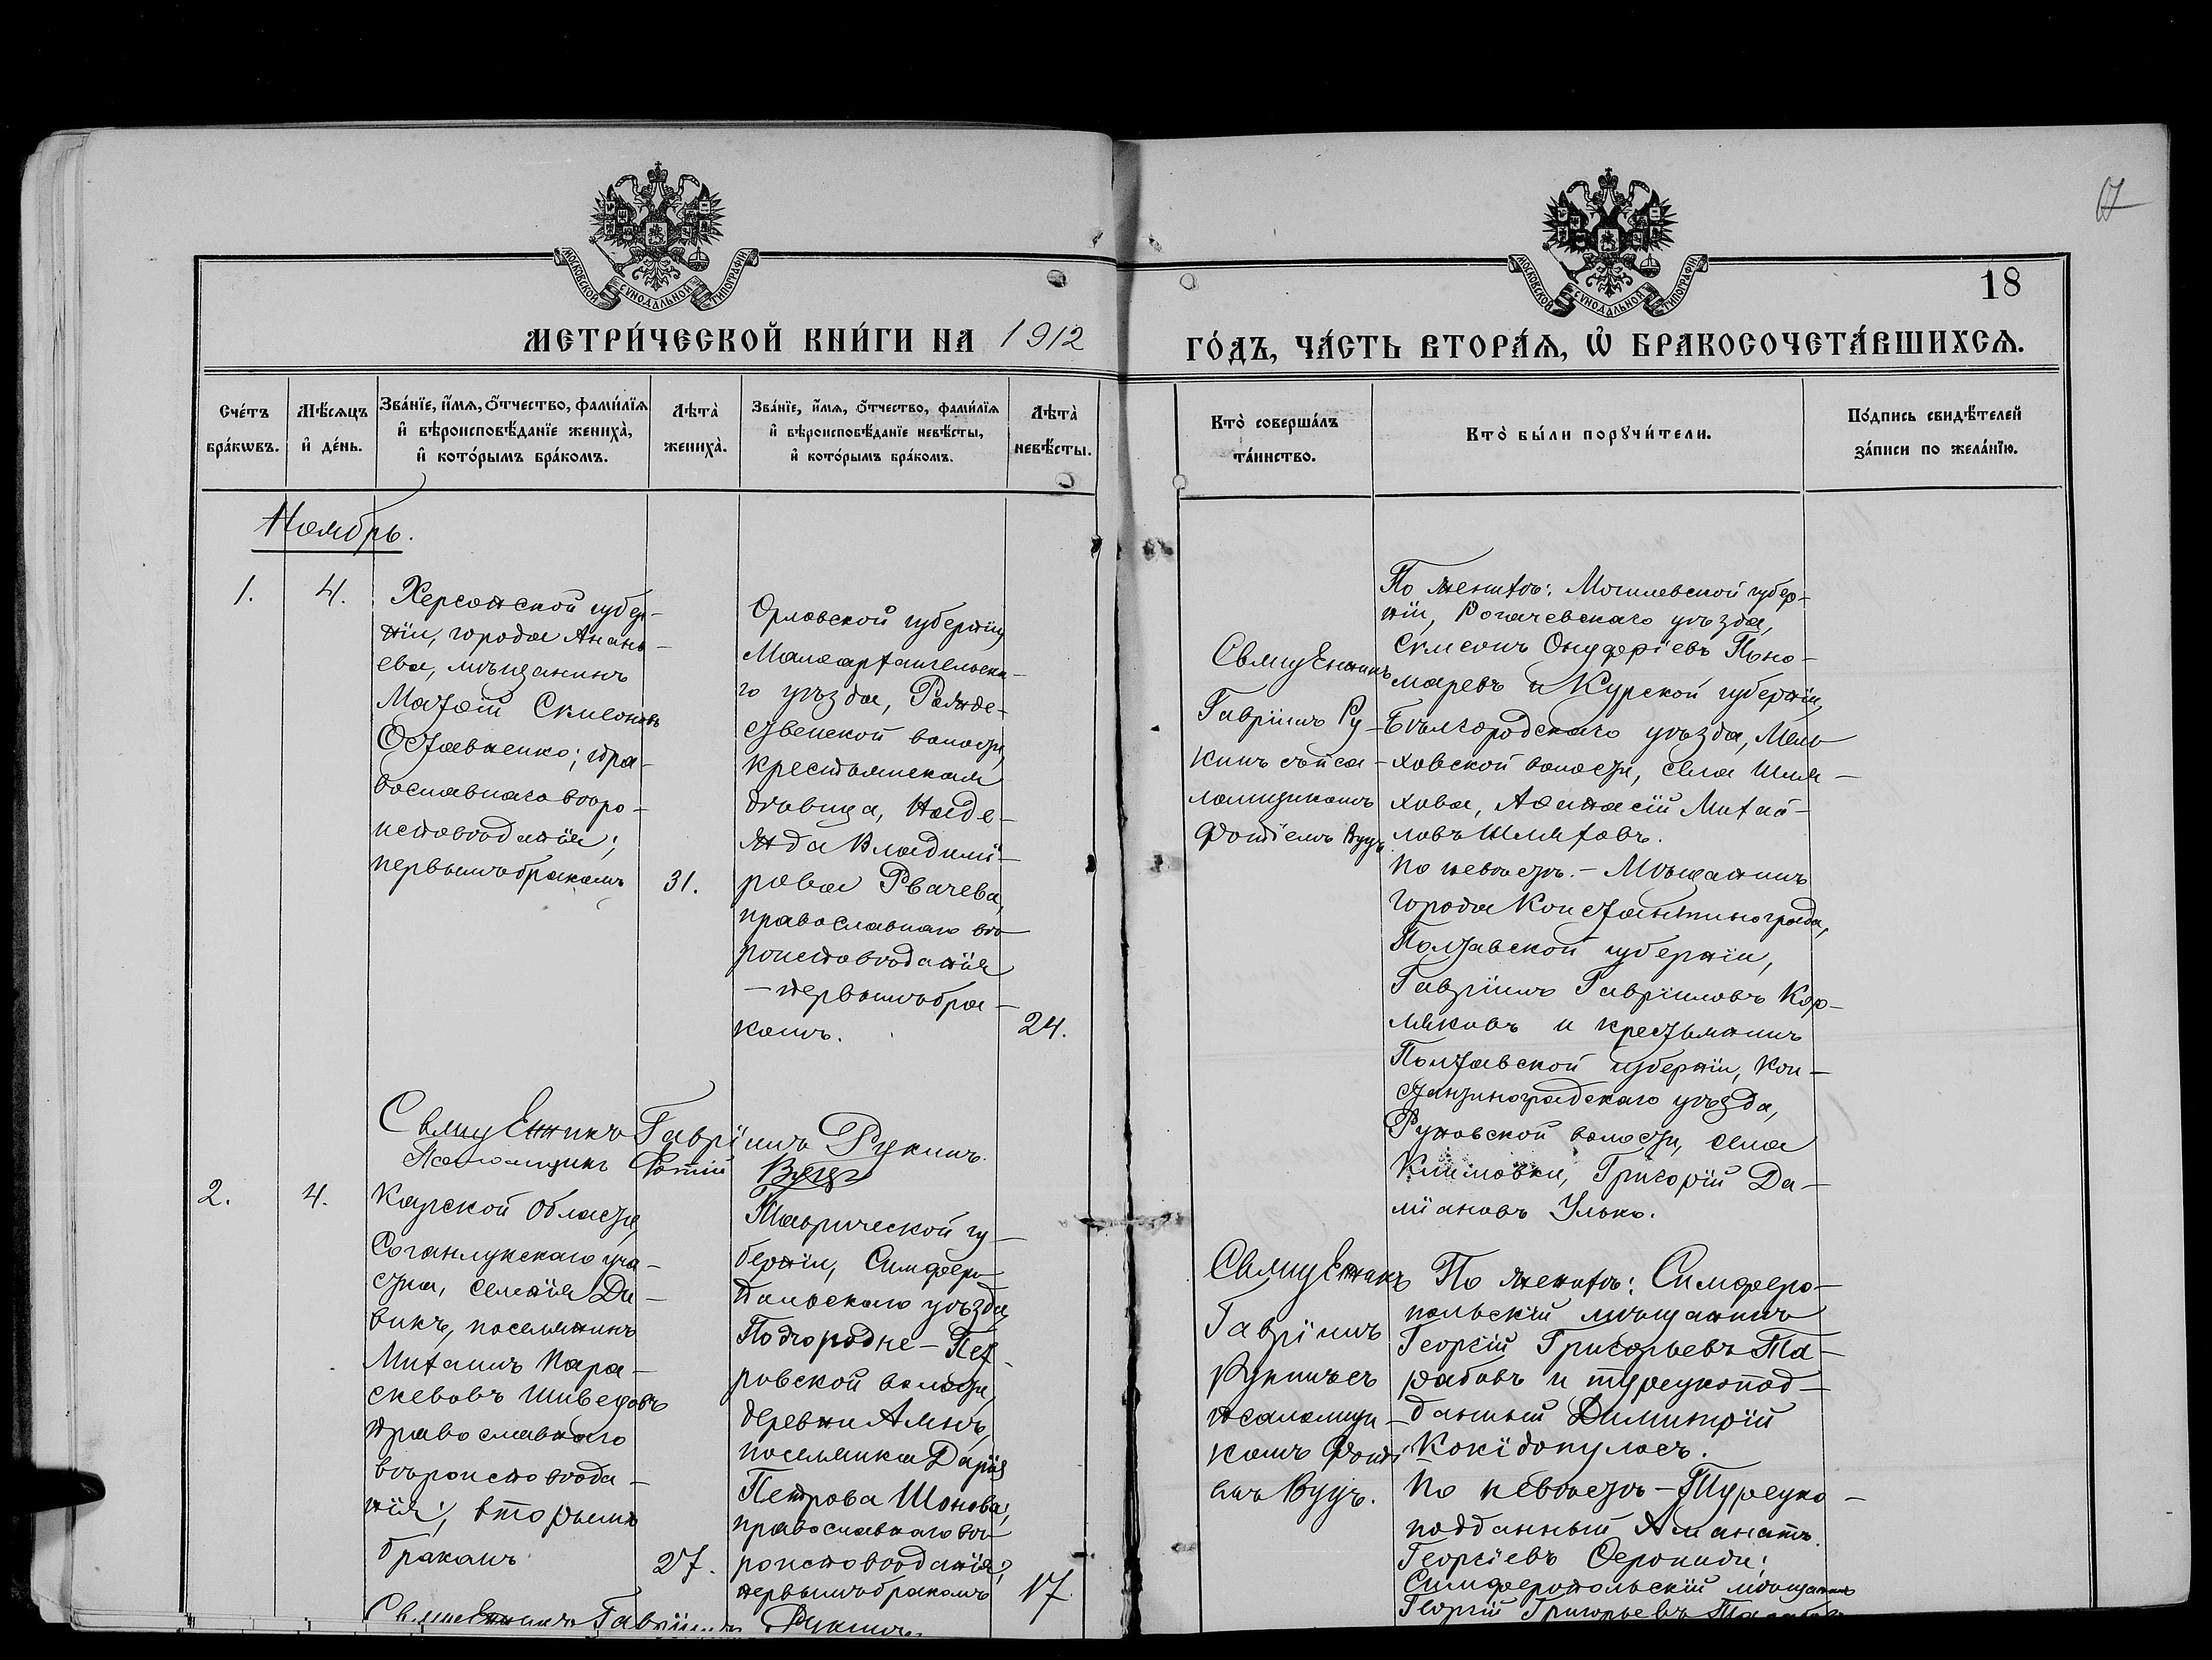 МОСКОВСКОЙ СѴНОДАЛЬНОЙ ТИПОГРАФІИ
МОСКОВСКОЙ СѴНОДАЛЬНОЙ ТИПОГРАФІИ
18
МЕТРИ́ЧЕСКОЙ КНИ́ГИ НА 1912
ГО́ДЪ, ЧА́СТЬ ВТОРА́Ѧ, Ѡ҆ БРАКОСОЧЕТА́ВШИХСѦ.
Сче́тъ
бра́кѡвъ.
Мѣ́сѧцъ
и҆ де́нь.
Зва́нїе, и҆́мѧ, о҆́тчество, фами́лїѧ
и҆ вѣроисповѣ́данїе жениха̀,
и҆ кото́рымъ бра́комъ.
Лѣ́та̀
жениха̀.
Зва́нїе, и҆́мѧ, о҆́тчество, фами́лїѧ
и҆ вѣроисповѣ́данїе невѣ́сты,
и҆ кото́рымъ бра́комъ.
Лѣ́та̀
невѣ́сты.
Кто̀ соверша́лъ
та́инство.
Кто̀ бы́ли порꙋчи́тели.
По́дпись свидѣ́телей
за́писи по жела́нїю.
Ноябрь.
1.
4.
Херсонской губер-
нiи, города Анань-
ева, мѣщанинъ
Матѳiй Симеоновъ
Оставненко; пра-
вославнаго вѣро-
исповѣданiя;
первымъ бракомъ
31.
Орловской губернiи,
Малоархангельска-
го уѣзда, Рожде-
ственской волости,
крестьянская
дѣвица, Наде-
жда Владими-
рова Рвачева,
православнаго вѣ-
роисповѣданiя
-первымъ бра-
комъ.
24.
Священникъ
Гаврiилъ Ру-
кинъ съ пса-
ломщикомъ
Фотiемъ Вуцъ
По женихѣ: Могилевской губер-
нiи, Рогачевскаго уѣзда,
Симеонъ Онуфрiевъ Поно-
маревъ и Курской губернiи,
Бѣлгородскаго уѣзда, Мели-
ховской волости, села Шля-
хова, Аѳанасiй Михай-
ловъ Шляховъ.
По невѣстѣ. - Мѣщанинъ
города Константинограда,
Полтавской губернiи,
Гаврiилъ Гаврiиловъ Кор-
ляковъ и крестьянинъ
Полтавской губернiи, Кон-
стантиноградскаго уѣзда,
Руновской волости, села
Климовки, Григорiй Да-
мiановъ Улько.
Священникъ Гаврiилъ Рукинъ.
Псаломщикъ Фотiй Вуцъ
2.
4.
Карской области,
Соганлукскаго уча-
стка, селенiя Ди-
викъ, поселянинъ
Михаилъ Пара-
скевовъ Шиведовъ
православнаго
вѣроисповѣда-
нiя; вторымъ
бракомъ
27.
Таврической гу-
бернiи, Симферо-
польскаго уѣзда,
Подгородне-Пет-
ровской волости,
деревни Аминъ,
поселянка Дарiя
Петрова Шонова;
православнаго вѣ-
роисповѣданiя;
первымъ бракомъ
17.
Священникъ
Гаврiилъ
Рукинъ съ
псаломщи-
комъ Фотi-
емъ Вуцъ.
По женихѣ: Симферо-
польскiй мѣщанинъ
Георгiй Григорьевъ Та-
рабовъ и турецкопод-
данный Димитрiй
Кокiдопулосъ.
По невѣстѣ - Турецко-
подданный Аманатъ
Георгiевъ Серопиди;
Симферопольскiй мѣщанинъ
Георгiй Григорьевъ Тарабовъ
Священникъ Гаврiилъ Рукинъ